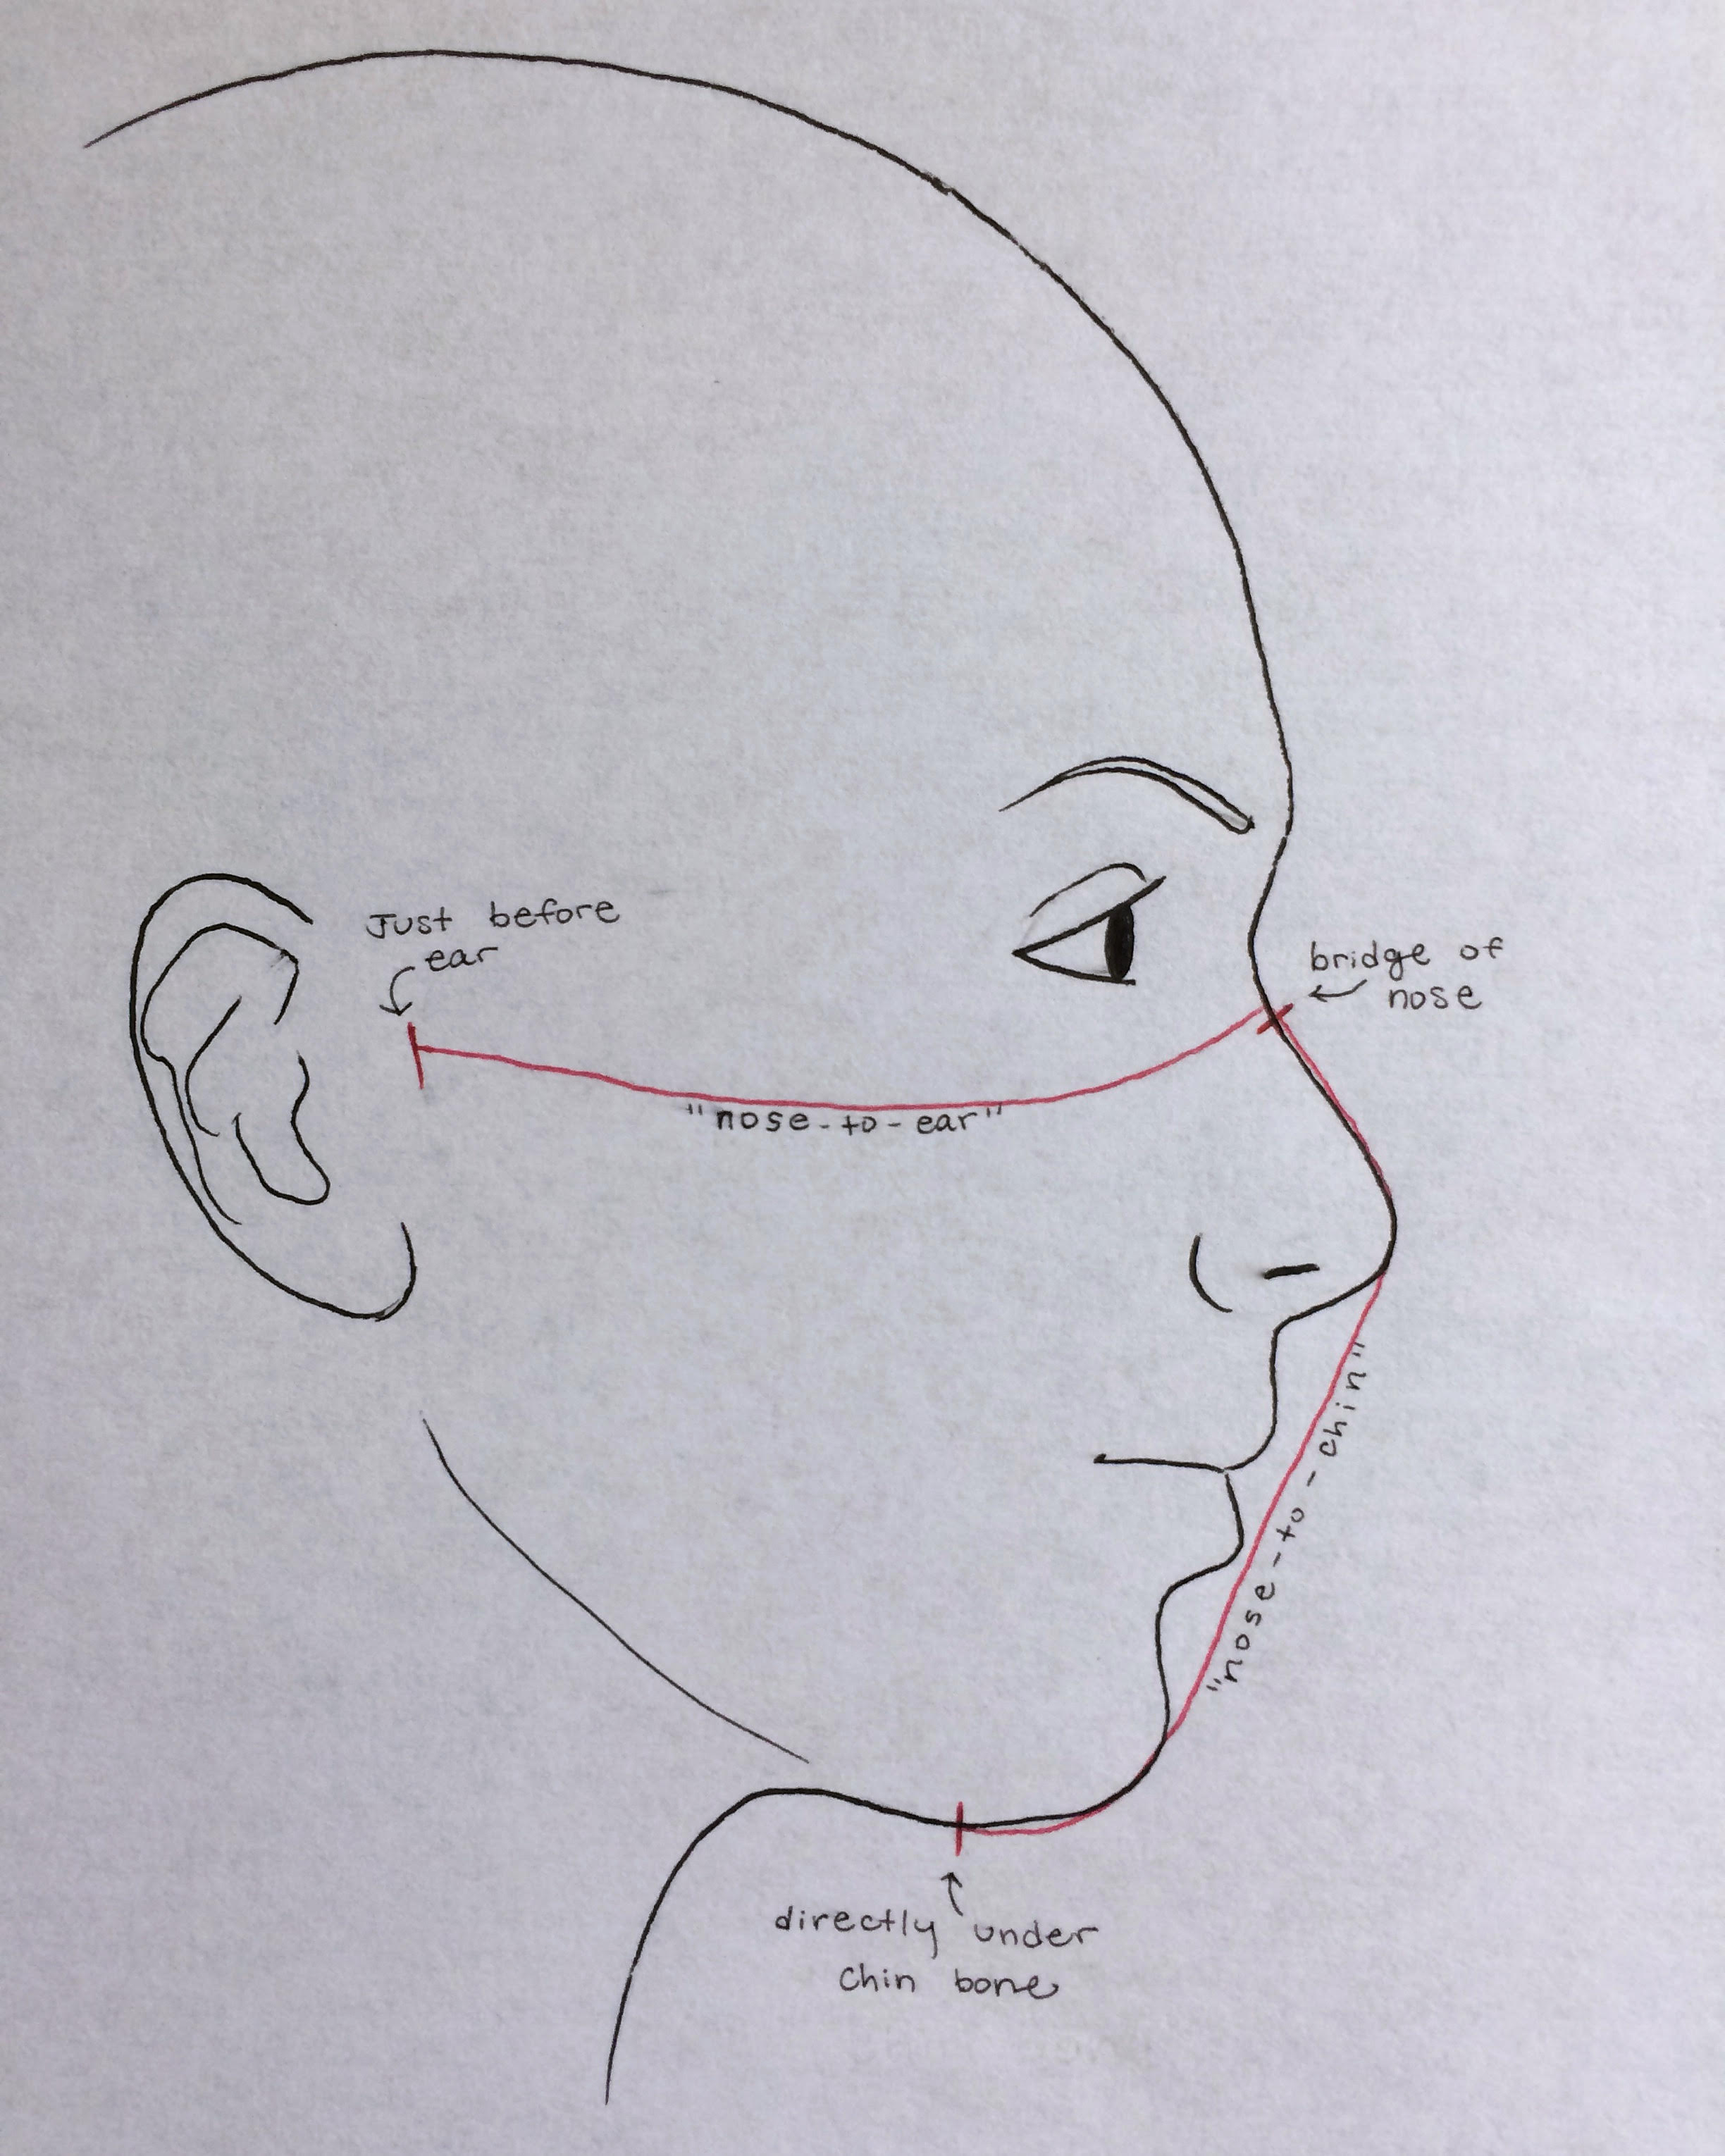 Just before
ear
bridge of
nose
"nose-to-ear"
"nose-to-chin"
directly under
chin bone